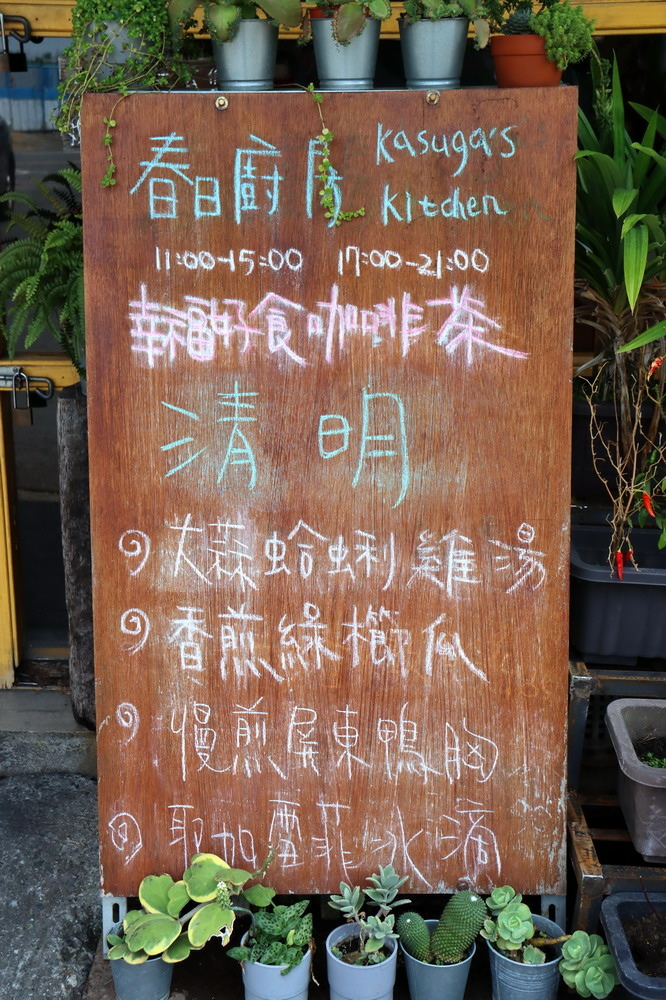 春日廚房 Kasuga's
Kitchen
11:00-15:00 17:00-21:00
幸福好食咖啡茶
清明
大蒜蛤蜊雞湯
香煎綠櫛瓜
慢煎屏東鴨胸
耶加雪菲冰滴